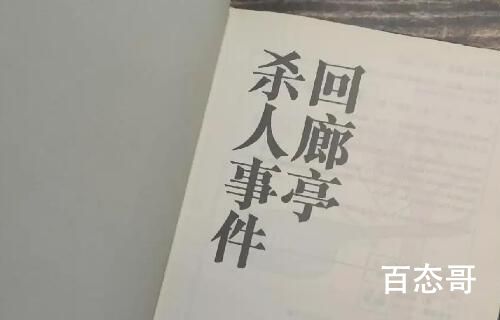 回廊亭
杀人事件
百态哥